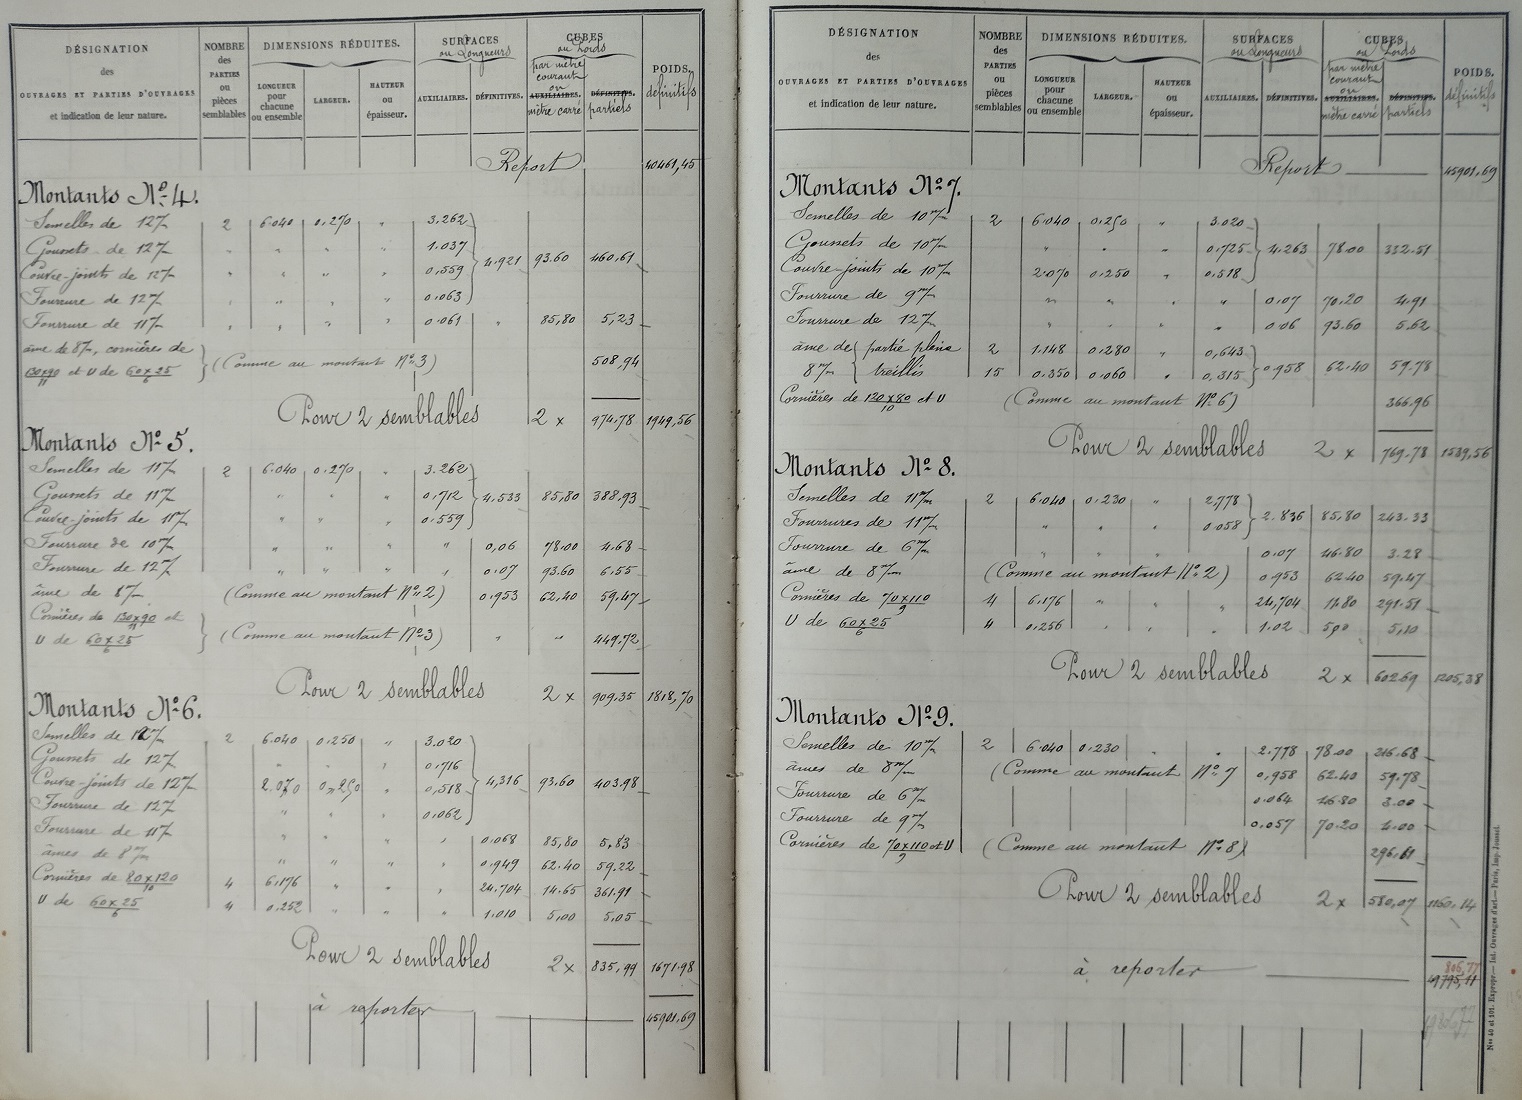 DÉSIGNATION
des
OUVRAGES ET PARTIES D'OUVRAGES
et indication de leur nature.
NOMBRE des PARTIES ou pièces semblables
DIMENSIONS RÉDUITES.
LONGUEUR pour chacune ou ensemble
LARGEUR.
HAUTEUR ou épaisseur.
SURFACES ou Longueurs
AUXILIAIRES. DÉFINITIVES.
CUBES ou Poids
par mètre courant ou mètre carré
AUXILIAIRES. DÉFINITIFS. partiels
POIDS. définitifs
Report 40461,45
Montants No 4.
Semelles de 12 m/m 2 6.040 0.270 " 3.262
Goussets de 12 m/m " " " " 1.037
Couvre-joints de 12 m/m " " " " 0,559 4.921 93.60 460,61
Fourrure de 12 m/m " " " " 0.063
Fourrure de 11 m/m " " " " 0.061 " 85,80 5,23
âme de 8 m/m, cornières de 130x90/11 et U de 60x25/6 (Comme au montant No 3) 508,94
Pour 2 semblables 2 x 974.78 1949,56
Montants No 5.
Semelles de 11 m/m 2 6.040 0.270 " 3.262
Goussets de 11 m/m " " " 0,712 4,533 85,80 388.93
Couvre-joints de 11 m/m " " " 0.559
Fourrure de 10 m/m " " " " 0,06 78.00 4.68
Fourrure de 12 m/m " " " " 0.07 93.60 6.55
âme de 8 m/m (Comme au montant No 2) 0,953 62,40 59.47
Cornières de 130x90/11 et
U de 60x25/6 (Comme au montant No 3) " " 449.72
Pour 2 semblables 2 x 909.35 1818,70
Montants No 6.
Semelles de 12 m/m 2 6.040 0.250 " 3.020
Goussets de 12 m/m " " " 0.716
Couvre-joints de 12 m/m 2.070 0,250 " 0,518 4,316 93.60 403.98
Fourrure de 12 m/m " " " 0.062
Fourrure de 11 m/m " " " " 0.068 85,80 5,83
âmes de 8 m/m " " " " 0.949 62.40 59.22
Cornières de 80x120/10 4 6.176 " " " 24.704 14.65 361.91
U de 60x25/6 4 0.252 " " " 1.010 5,00 5,05
Pour 2 semblables 2 x 835,99 1671.98
à reporter 45901,69
DÉSIGNATION
des
OUVRAGES ET PARTIES D'OUVRAGES
et indication de leur nature.
NOMBRE des PARTIES ou pièces semblables
DIMENSIONS RÉDUITES.
LONGUEUR pour chacune ou ensemble
LARGEUR.
HAUTEUR ou épaisseur.
SURFACES ou Longueurs
AUXILIAIRES. DÉFINITIVES.
CUBES ou Poids
par mètre courant ou mètre carré
AUXILIAIRES. DÉFINITIFS. partiels
POIDS. définitifs
Report 45901,69
Montants No 7.
Semelles de 10 m/m 2 6.040 0.250 " 3.020
Goussets de 10 m/m " " " 0.725 4.263 78.00 332.51
Couvre-joints de 10 m/m 2.070 0.250 " 0.518
Fourrure de 9 m/m " " " " 0.07 70.20 4.91
Fourrure de 12 m/m " " " " 0.06 93.60 5.62
âme de partie pleine 2 1.148 0.280 " 0,643
8 m/m treillis 15 0.350 0.060 " 0,315 0.958 62.40 59.78
Cornières de 120x80/10 et U (Comme au montant No 6) 366.96
Pour 2 semblables 2 x 769.78 1539,56
Montants No 8.
Semelles de 11 m/m 2 6.040 0.230 " 2.778
Fourrures de 11 m/m " " " 0.058 2.836 85,80 243.33
Fourrure de 6 m/m " " " 0.07 46.80 3.28
âme de 8 m/m (Comme au montant No 2) 0,953 62.40 59.47
Cornières de 70x110/9 4 6.176 " " " 24,704 11.80 291.51
U de 60x25/6 4 0.256 " " " 1.02 5,00 5,10
Pour 2 semblables 2 x 602.69 1205,38
Montants No 9.
Semelles de 10 m/m 2 6.040 0.230 " " 2.778 78.00 216.68
âmes de 8 m/m (Comme au montant No 7 0,958 62.40 59.78
Fourrure de 6 m/m 0.064 46.80 3.00
Fourrure de 9 m/m 0.057 70.20 4.00
Cornières de 70x110/9 et U (Comme au montant No 8) 296.61
Pour 2 semblables 2 x 580,07 1160,14
806,77
à reporter 49795,11
Nos 40 et 101. Expropr.— Int. Ouvrages d'art.— Paris, Imp. Jousset.